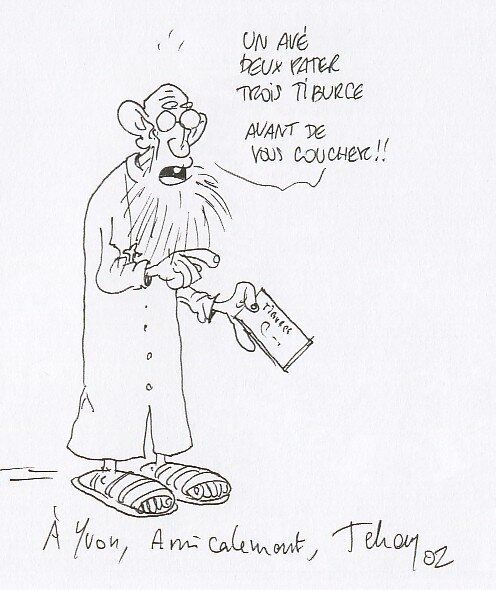 UN AVÉ
DEUX PATER
TROIS TIBURCE
AVANT DE
VOUS COUCHER!!
TIBURCE
À Yvon, Amicalement, Tehem 02